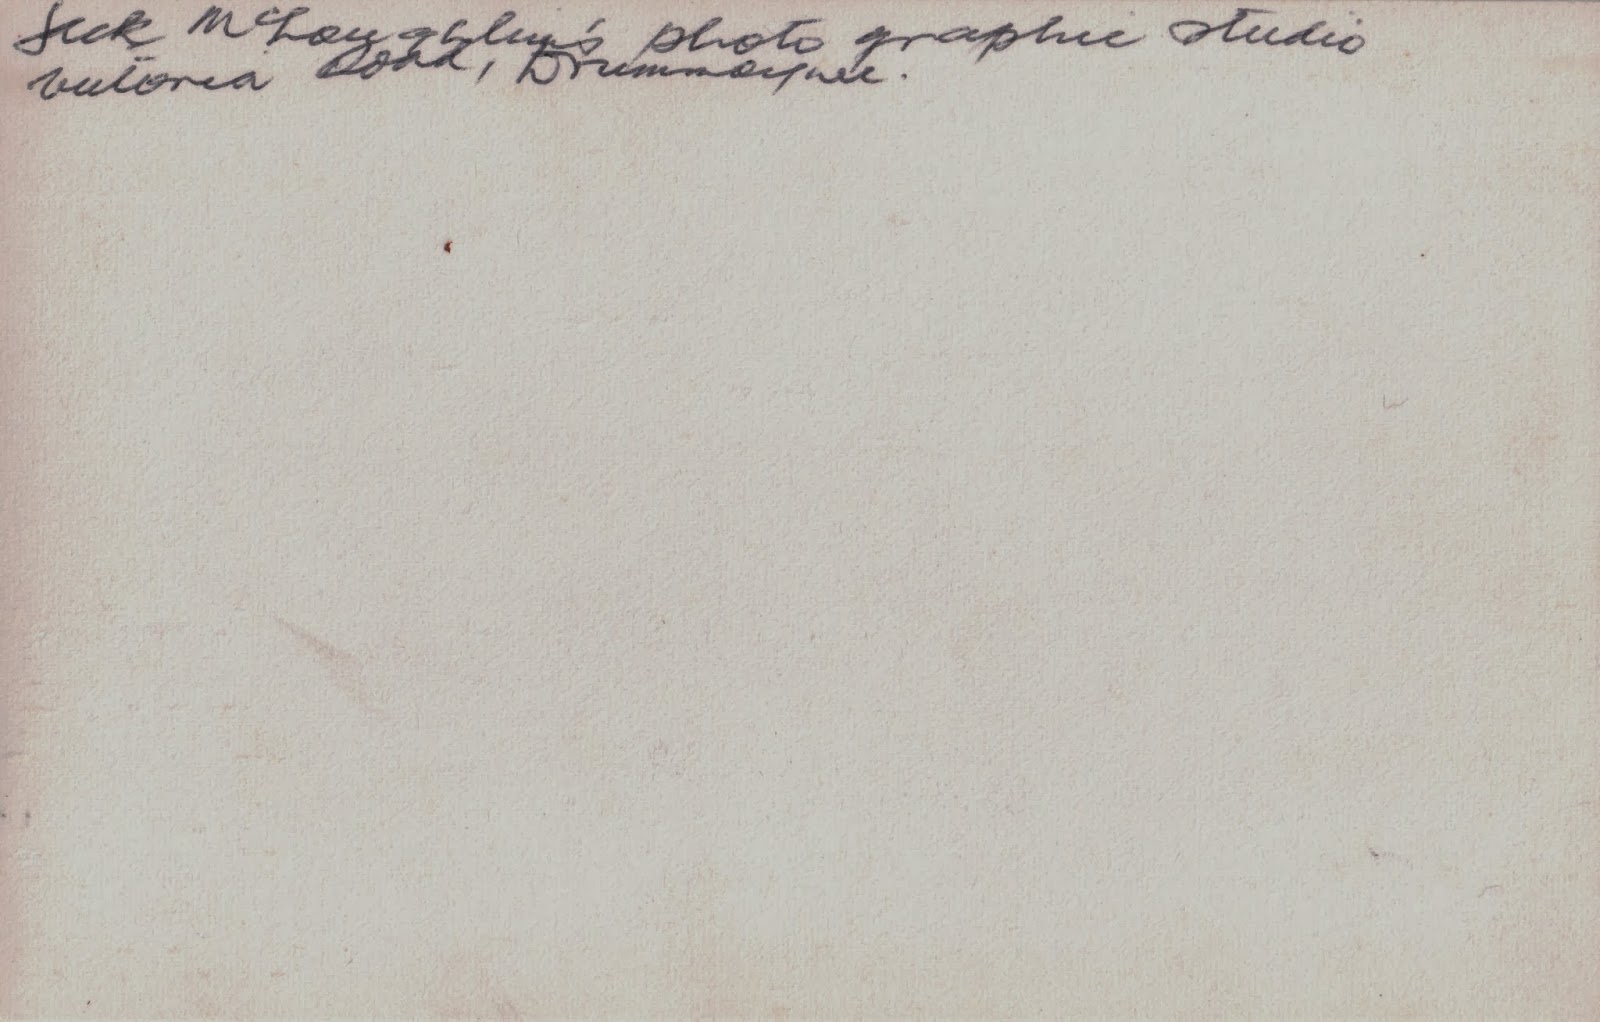 Jack McLoughlin's photo graphic studio
Victoria Road, Drummoyne.